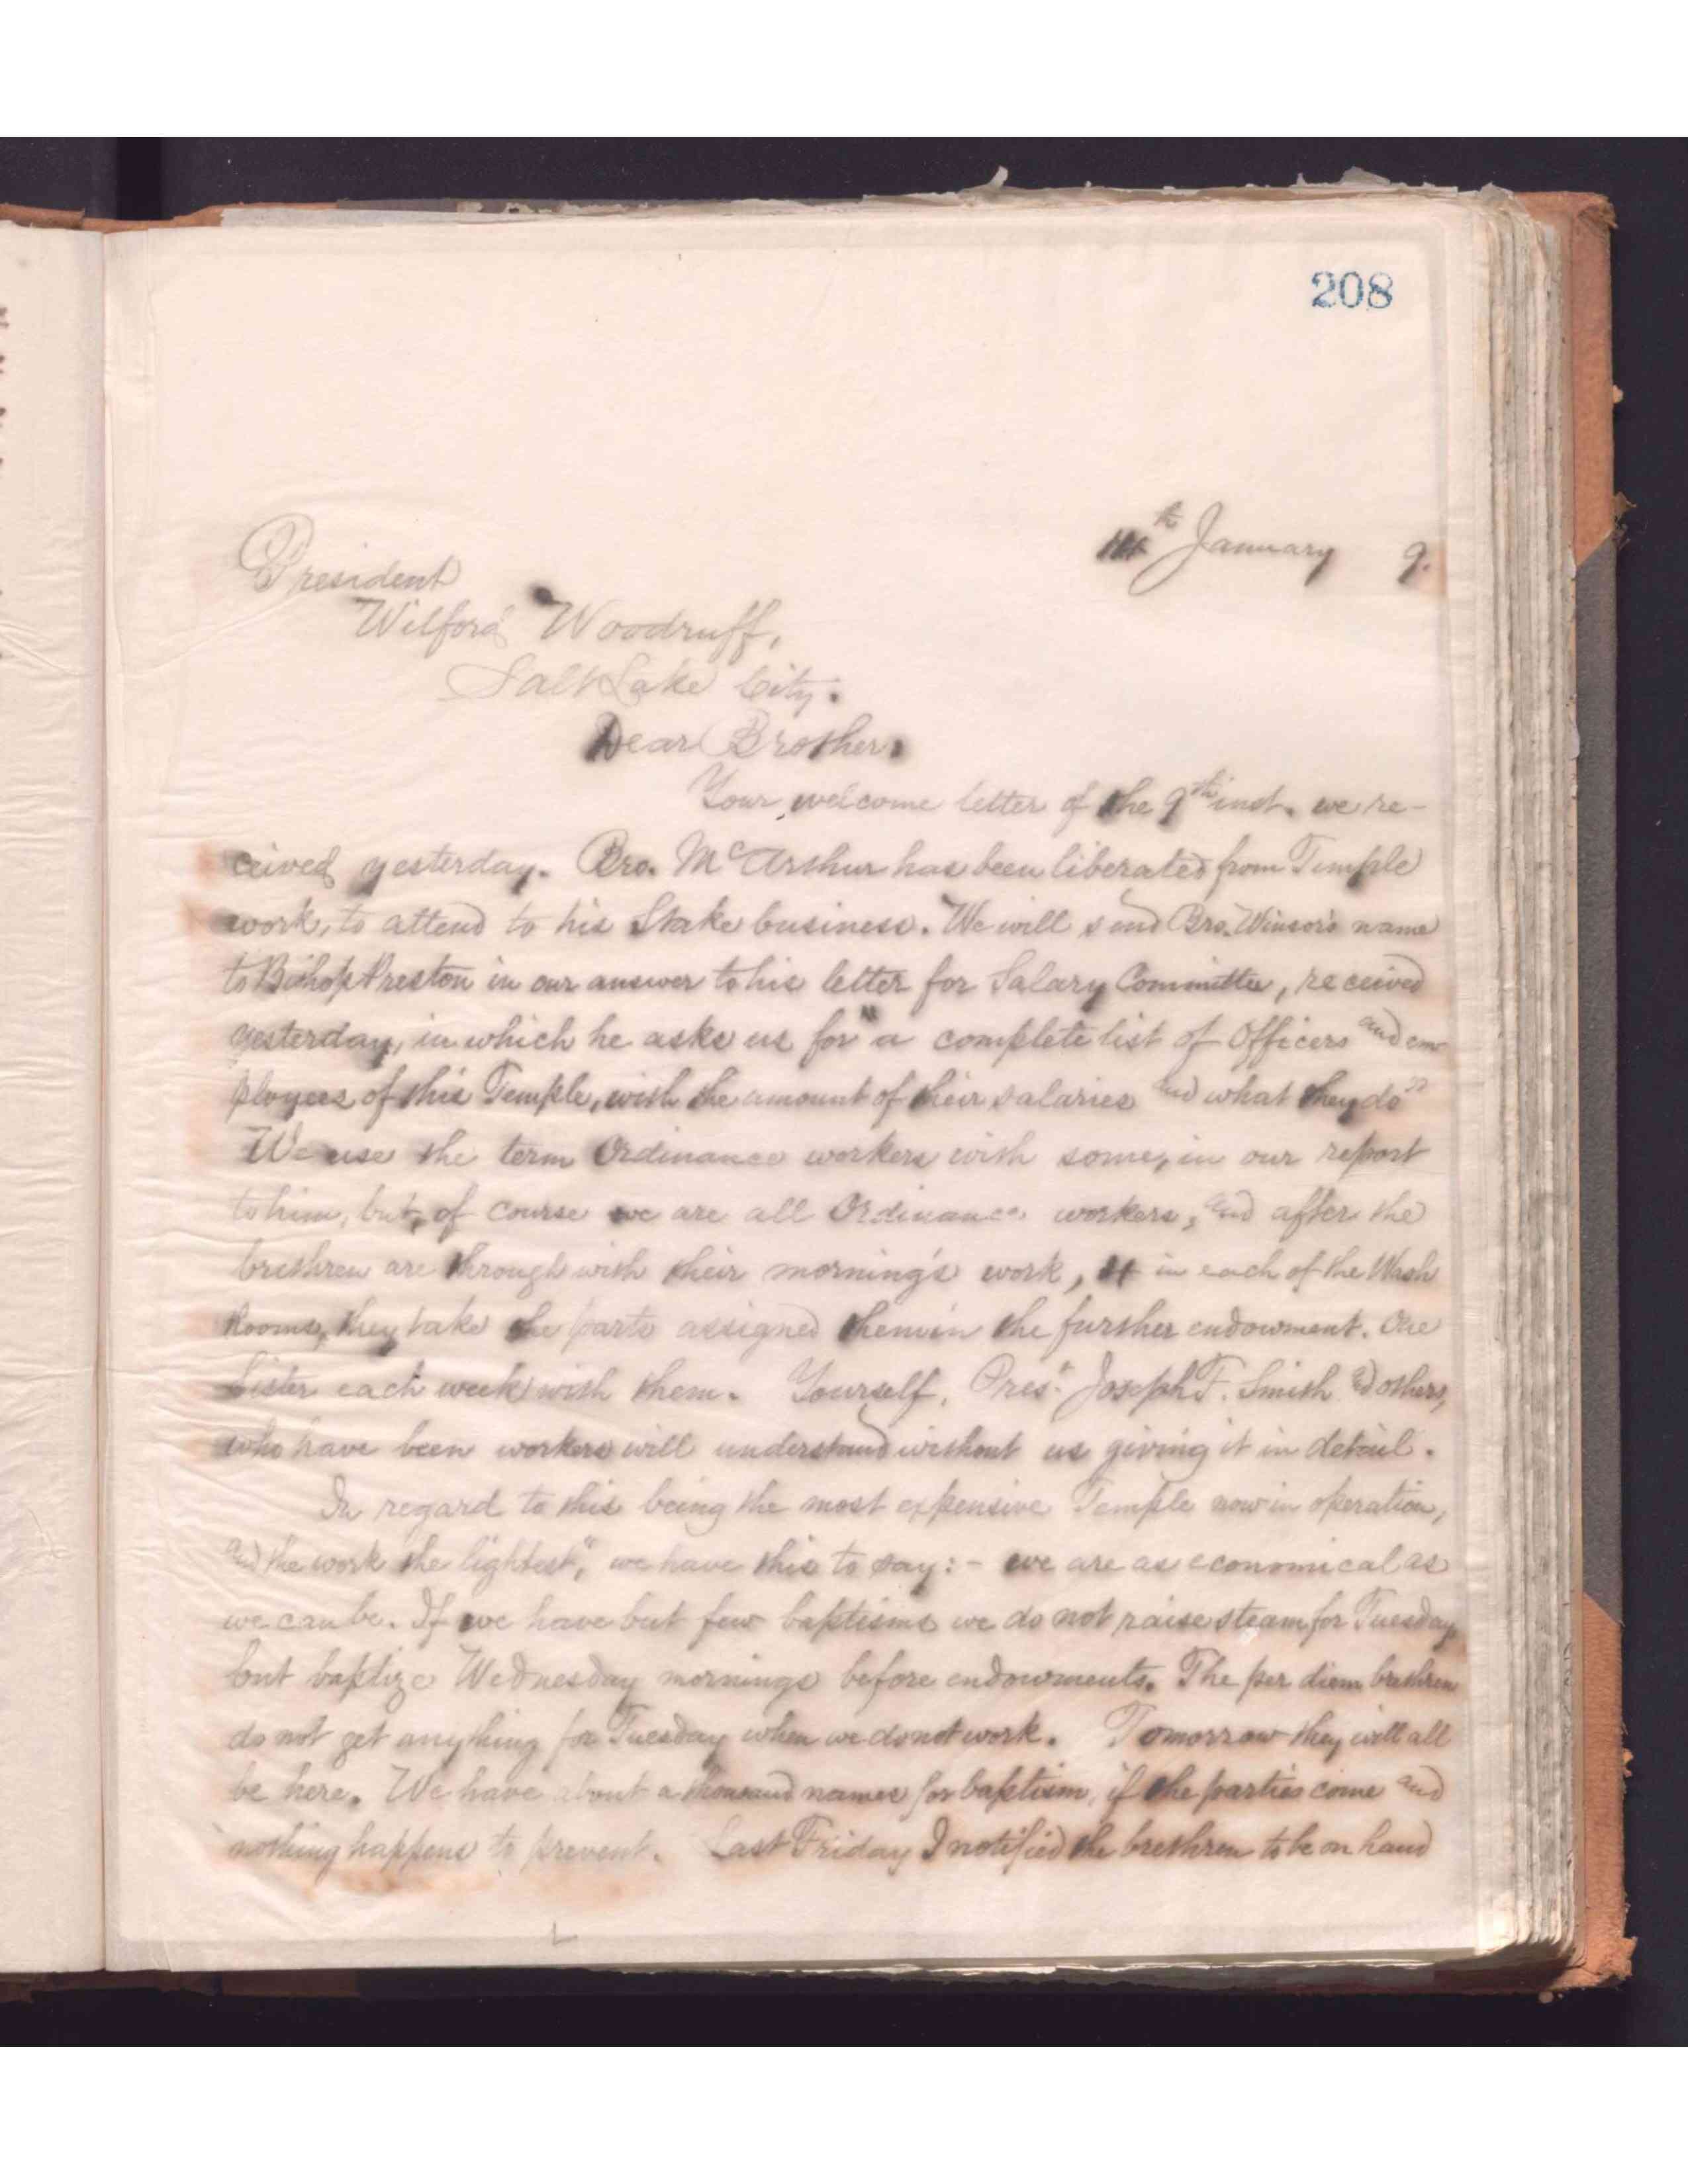 208
14th January 9.
President
Wilford Woodruff,
Salt Lake City.
Dear Brother,
Your welcome letter of the 9th inst. we re-
ceived yesterday. Bro. McArthur has been liberated from Temple
work, to attend to his Stake business. We will send Bro. Winsor's name
to Bishop Preston in our answer to his letter for Salary Committee, received
yesterday, in which he asks us for "a complete list of Officers and em
ployees of this Temple, with the amount of their salaries and what they do"
We use the term Ordinance workers with some, in our report
to him, but, of course we are all Ordinance workers, and after the
brethren are through with their morning's work, in each of the Wash
Rooms, they take the parts assigned them in the further endowment. One
Sister each week with them. Yourself, Prest. Joseph F. Smith and others,
who have been workers will understand without us giving it in detail.
In regard to this being the most expensive Temple now in operation,
and the work the lightest", we have this to say:- we are as economical as
we can be. If we have but few baptisms we do not raise steam for Tuesday,
but baptize Wednesday mornings before endowments. The per diem brethren
do not get anything for Tuesday when we do not work. Tomorrow they will all
be here. We have about a thousand names for baptism, if the parties come and
nothing happens to prevent. Last Friday I notified the brethren to be on hand